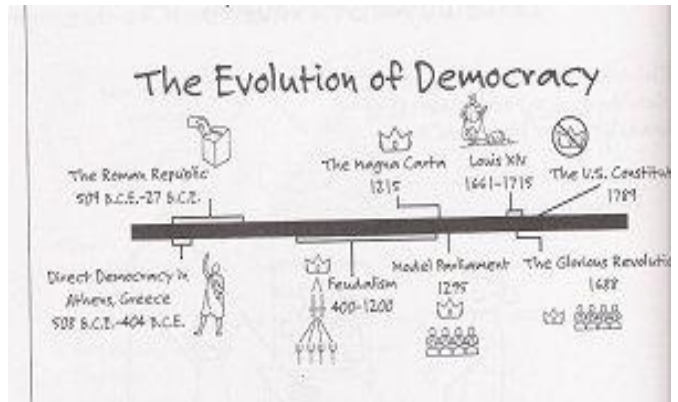 The Evolution of Democracy
The Roman Republic
509 B.C.E.-27 B.C.E.
The Magna Carta
1215
Louis XIV
1661-1715
The U.S. Constitut
1789
Direct Democracy in
Athens, Greece
508 B.C.E.-404 B.C.E.
Feudalism
400-1200
Model Parliament
1295
The Glorious Revolutio
1688